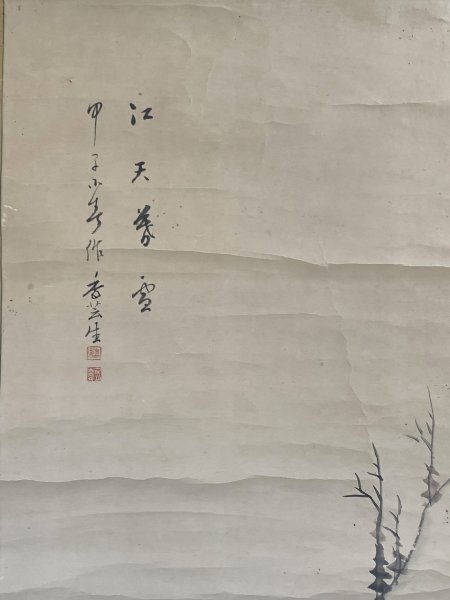 江天暮雪
甲子小春作 香芸生